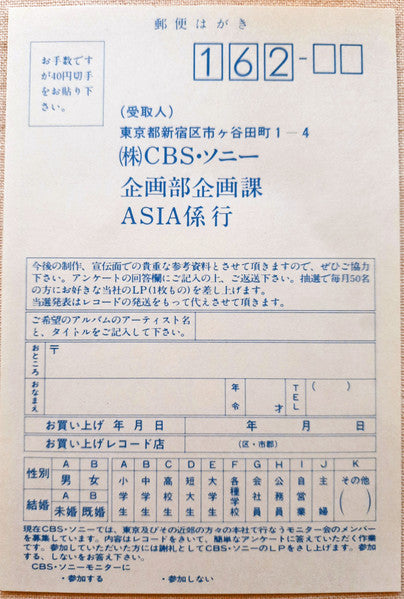 郵便はがき
お手数です
が40円切手
をお貼り下
さい。
162-
(受取人)
東京都新宿区市ヶ谷田町1―4
(株)CBS・ソニー
企画部企画課
ASIA係行
今後の制作、宣伝面での貴重な参考資料とさせて頂きますので、ぜひご協力
下さい。アンケートの回答欄にご記入の上、ご返送下さい。抽選で毎月50名
の方にお好きな当社のLP(1枚もの)を差し上げます。
当選発表はレコードの発送をもって代えさせて頂きます。
ご希望のアルバムのアーティスト名
と、タイトルをご記入して下さい。
おところ
〒
おなまえ
年令
才
TEL
( )
お買い上げ 年 月 日
年 月 日
お買い上げレコード店
(区・市郡)
性別
A 男
B 女
結婚
A 未婚
B 既婚
A 小学生
B 中学生
C 高校生
D 短大生
E 大学生
F 各種学校
G 会社員
H 公務員
I 自営業
J 主婦
K その他
( )
現在CBS・ソニーでは、東京及びその近郊の方々の本社で行なうモニター会のメンバー
を募集しています。内容はレコードをきいて、簡単なアンケートに答えていただく作業
です。参加していただいた方には謝礼としてCBS・ソニーのLPをさし上げます。参加
する、しないをお答え下さい。
CBS・ソニーモニターに
・参加する ・参加しない